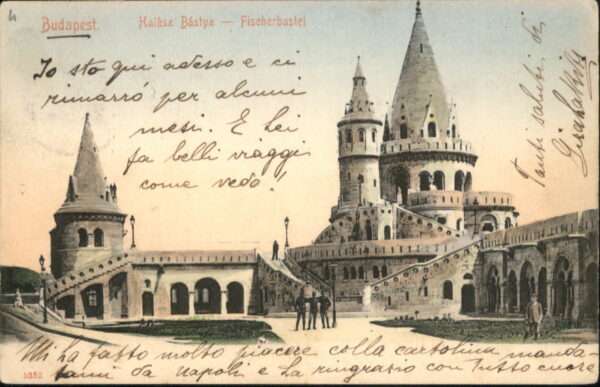 Budapest. Halász Bástya — Fischerbastei
Io sto qui adesso e ci
rimarrò per alcuni
mesi. E Lei
fa belli viaggi
come vedo!
Tanti saluti di
Mi ha fatto molto piacere colla cartolina manda-
tami da Napoli e La ringrazio con tutto cuore